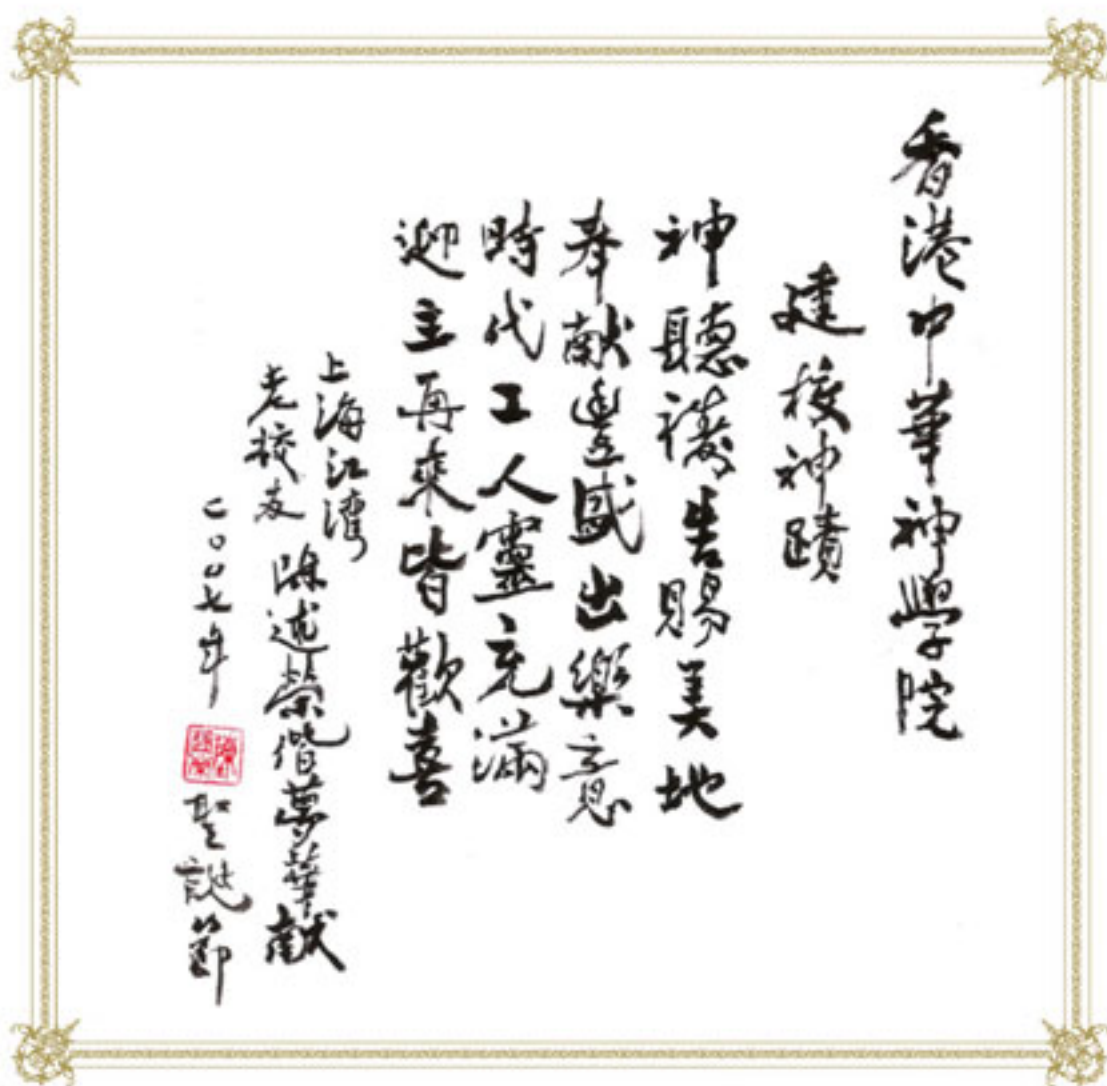 香港中華神學院
建校神蹟
神聽禱告賜美地
奉献豐盛出樂意
時代工人靈充滿
迎主再來皆歡喜
上海江湾
老校友
陈述榮偕夢華献
二〇〇七年
聖誕節